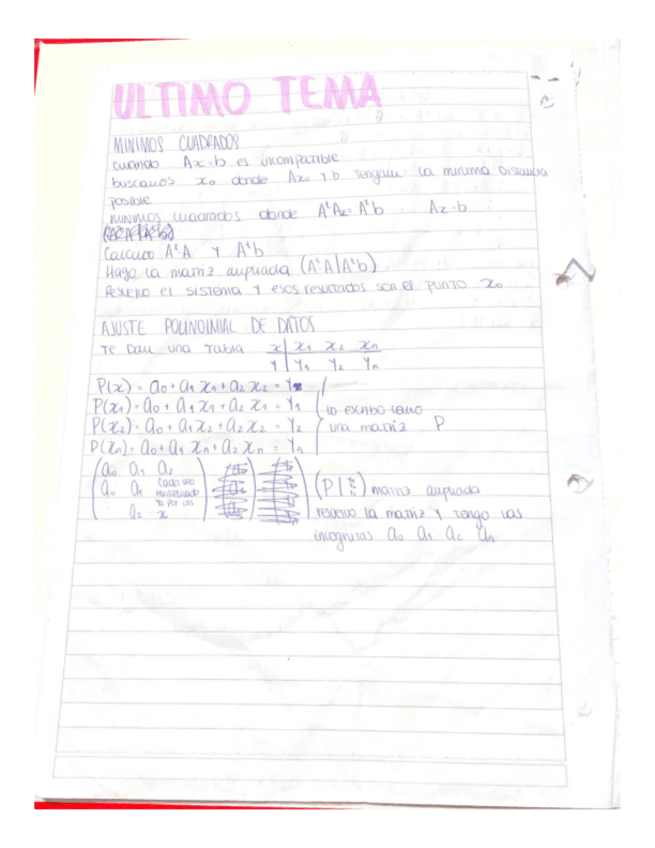 ULTIMO TEMA
MINIMOS CUADRADOS
cuando Ax=b es incompatible
buscamos x₀ donde Ax₀ y b tengan la minima distancia
posible
minimos cuadrados donde AᵗAx=Aᵗb Ax=b
Calculo AᵗA y Aᵗb
Hago la matriz ampliada (AᵗA|Aᵗb)
Resuelvo el sistema y esos resultados son el punto x₀
AJUSTE POLINOIMIAL DE DATOS
Te dan una tabla x | x₁ x₂ xₙ
y | y₁ y₂ yₙ
P(x) = a₀ + a₁ xₙ + a₂ x₂ = y
P(x₁) = a₀ + a₁ x₁ + a₂ x₁ = y₁
P(x₂) = a₀ + a₁ x₂ + a₂ x₂ = y₂
P(xₙ) = a₀ + a₁ xₙ + a₂ xₙ = yₙ
lo escribo como
una matriz P
a₀ a₁ a₂
a₀ a₁ cada uno
multiplicado
por las
a₂ x
(P | ) matriz ampliada
resuelvo la matriz y tengo las
incognitas a₀ a₁ a₂ aₙ